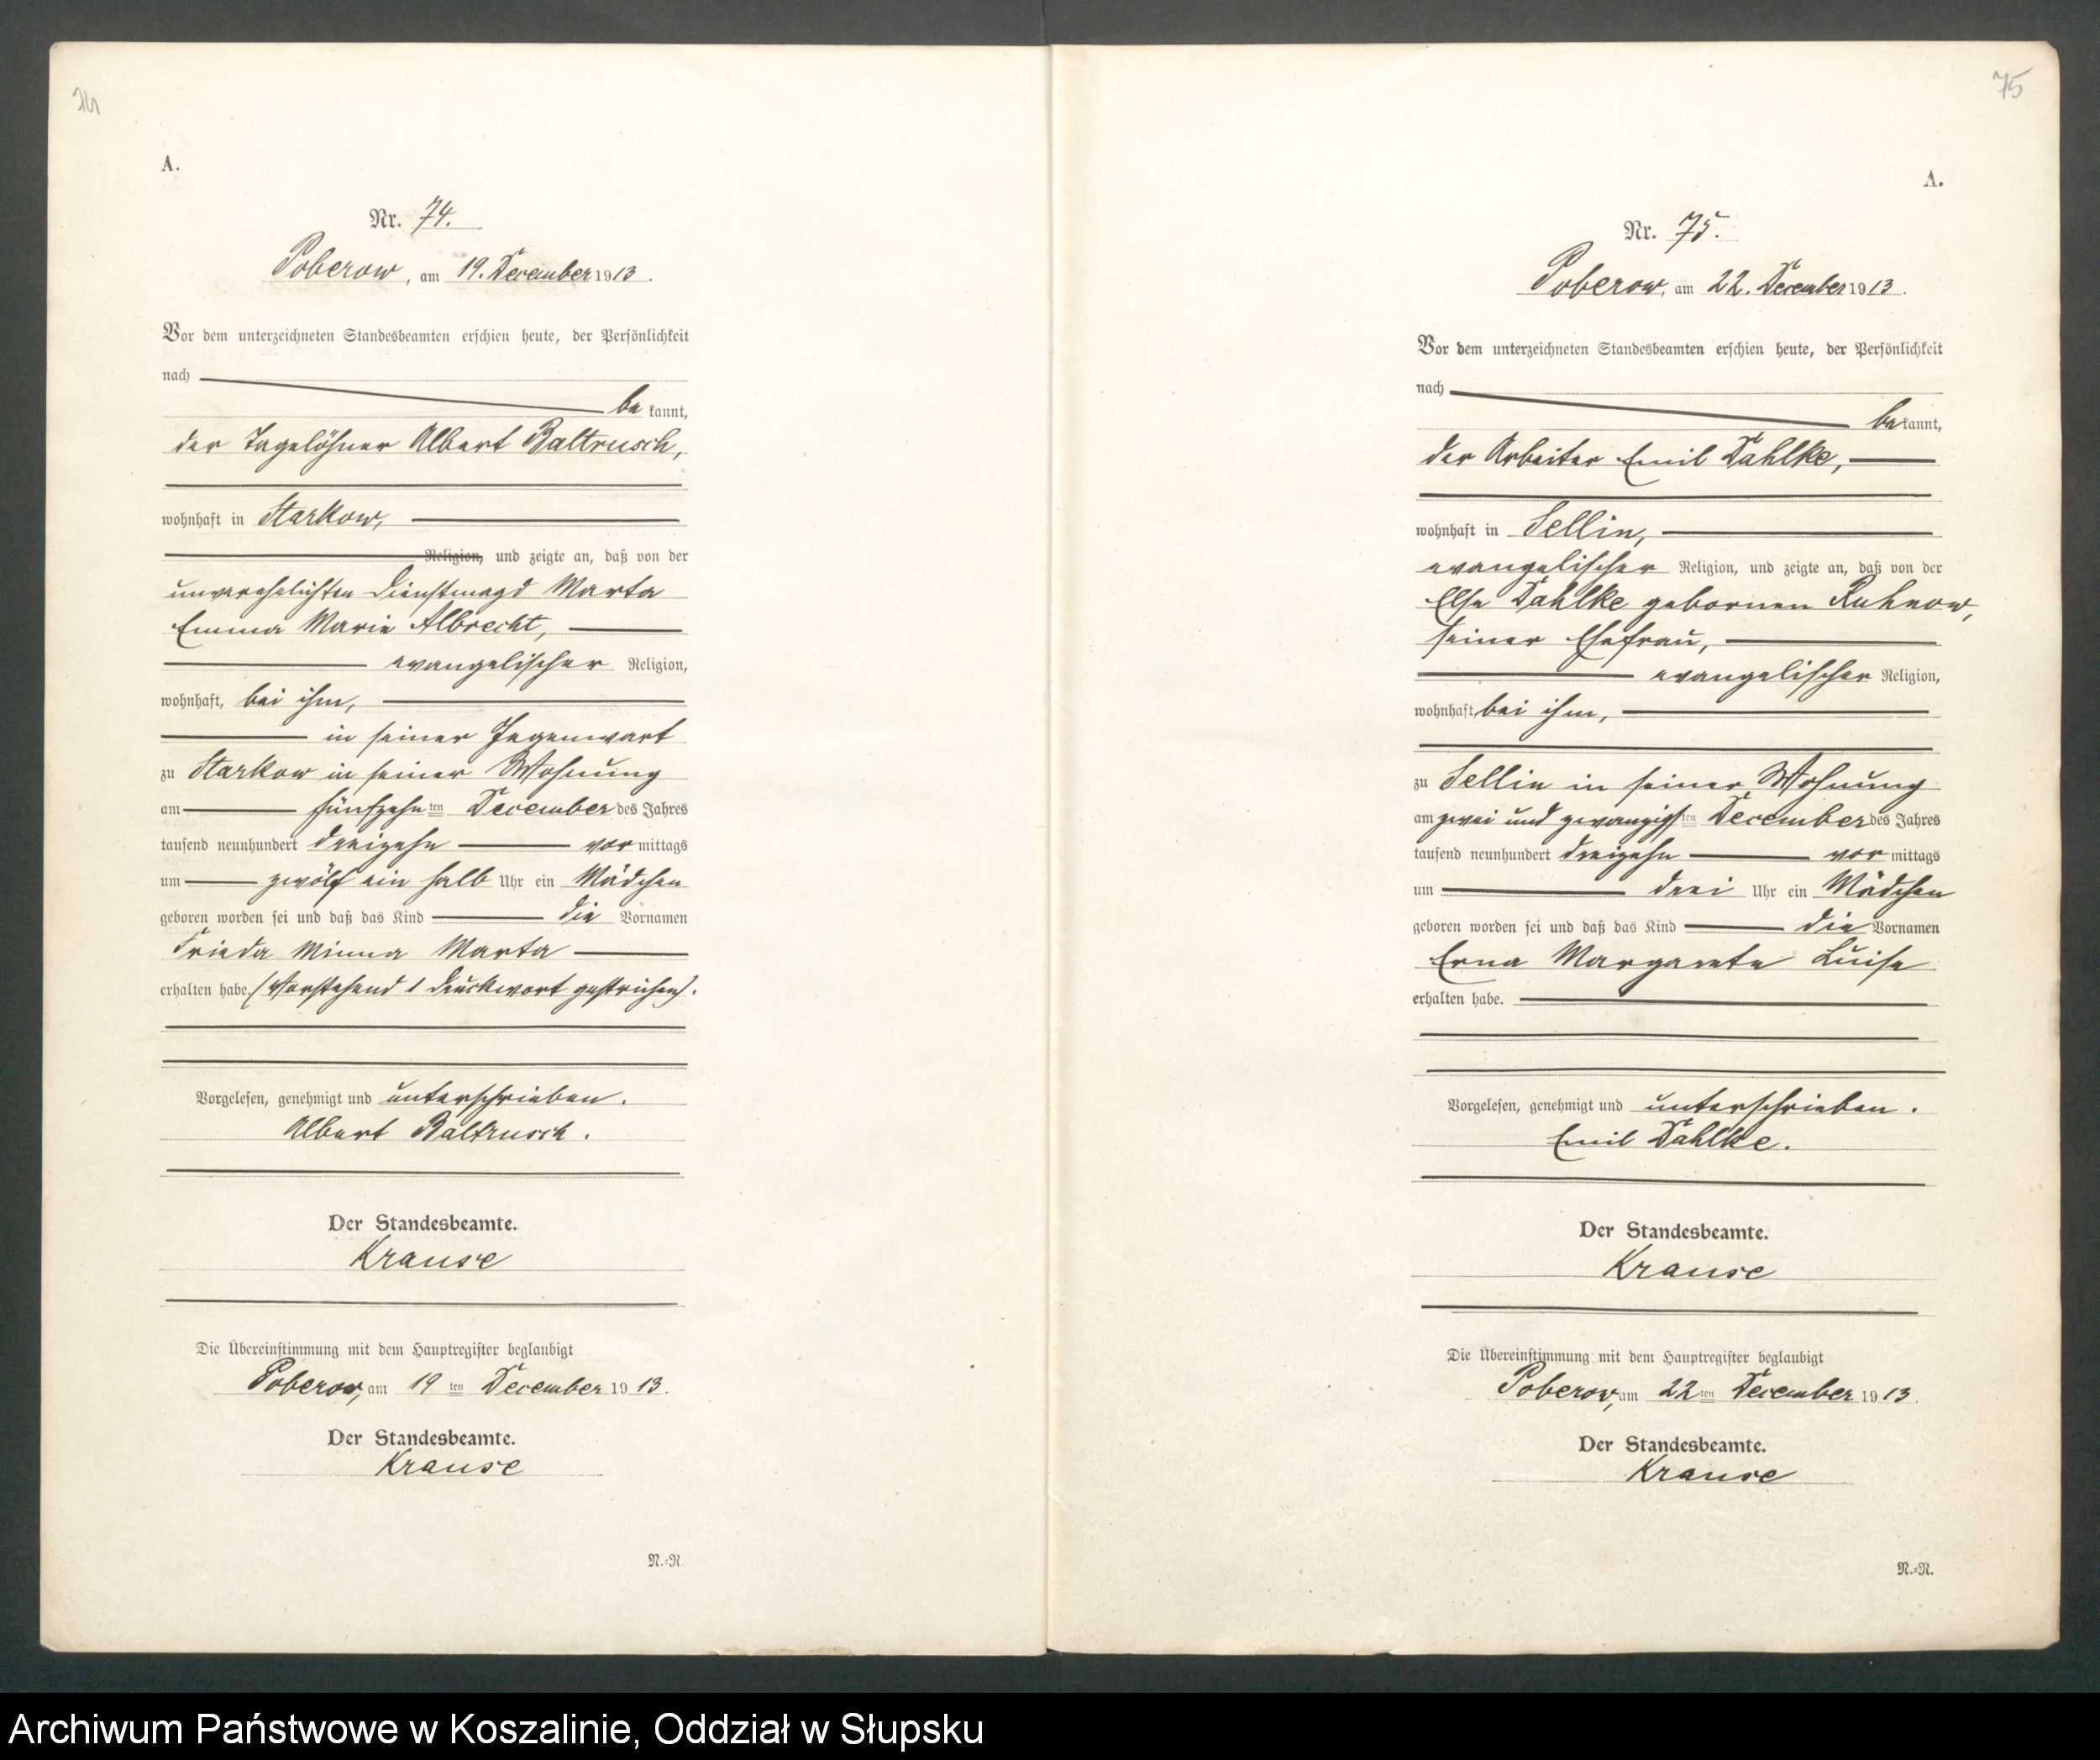 74
A.
Nr. 74.
Poberow, am 19. December 1913.
Vor dem unterzeichneten Standesbeamten erschien heute, der Persönlichkeit
nach
be kannt,
der Tagelöhner Albert Baltrusch,
wohnhaft in Starkow,
Religion, und zeigte an, daß von der
unverehelichten Dienstmagd Marta
Emma Marie Albrecht,
evangelischer Religion,
wohnhaft, bei ihm,
in seiner Gegenwart
zu Starkow in seiner Wohnung
am fünfzehn ten December des Jahres
tausend neunhundert dreizehn vor mittags
um zwölf ein halb Uhr ein Mädchen
geboren worden sei und daß das Kind die Vornamen
Frieda Minna Marta
erhalten habe. (Vorstehend 1 Druckwort gestrichen).
Vorgelesen, genehmigt und unterschrieben.
Albert Baltrusch.
Der Standesbeamte.
Krause
Die Übereinstimmung mit dem Hauptregister beglaubigt
Poberow, am 19 ten December 1913.
Der Standesbeamte.
Krause
N.-R.
75
A.
Nr. 75.
Poberow, am 22. December 1913.
Vor dem unterzeichneten Standesbeamten erschien heute, der Persönlichkeit
nach
be kannt,
der Arbeiter Emil Dahlke,
wohnhaft in Sellin,
evangelischer Religion, und zeigte an, daß von der
Else Dahlke gebornen Ruhnow,
seiner Ehefrau,
evangelischer Religion,
wohnhaft bei ihm,
zu Sellin in seiner Wohnung
am zwei und zwanzigs ten December des Jahres
tausend neunhundert dreizehn vor mittags
um drei Uhr ein Mädchen
geboren worden sei und daß das Kind die Vornamen
Erna Margarete Luise
erhalten habe.
Vorgelesen, genehmigt und unterschrieben.
Emil Dahlke.
Der Standesbeamte.
Krause
Die Übereinstimmung mit dem Hauptregister beglaubigt
Poberow, am 22 ten December 1913.
Der Standesbeamte.
Krause
N.-R.
Archiwum Państwowe w Koszalinie, Oddział w Słupsku